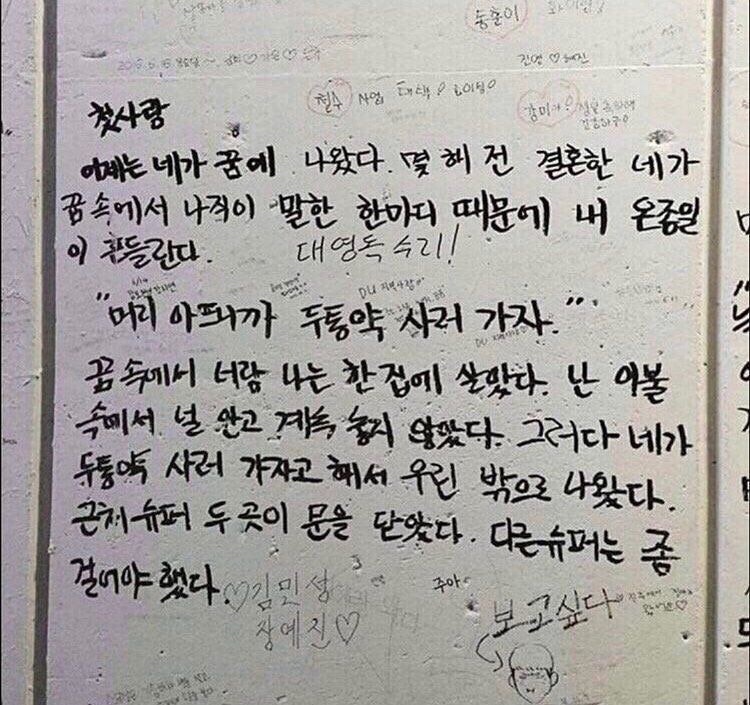 송춘이
진영♡혜진
철수 사업 대박!
첫사랑
어제는 네가 꿈에 나왔다. 몇 해 전 결혼한 네가
꿈 속에서 나직이 말한 한마디 때문에 내 온종일
이 흔들린다. 대영독수리!
"머리 아프니까 두통약 사러 가자."
꿈 속에서 너랑 나는 한 집에 살았다. 난 이불
속에서 널 안고 계속 놓지 않았다. 그러다 네가
두통약 사러 가자고 해서 우린 밖으로 나왔다.
근처 슈퍼 두 곳이 문을 닫았다. 다른 슈퍼는 좀
걸어야 했다.
♡김민성
장예진♡
주아
보고싶다